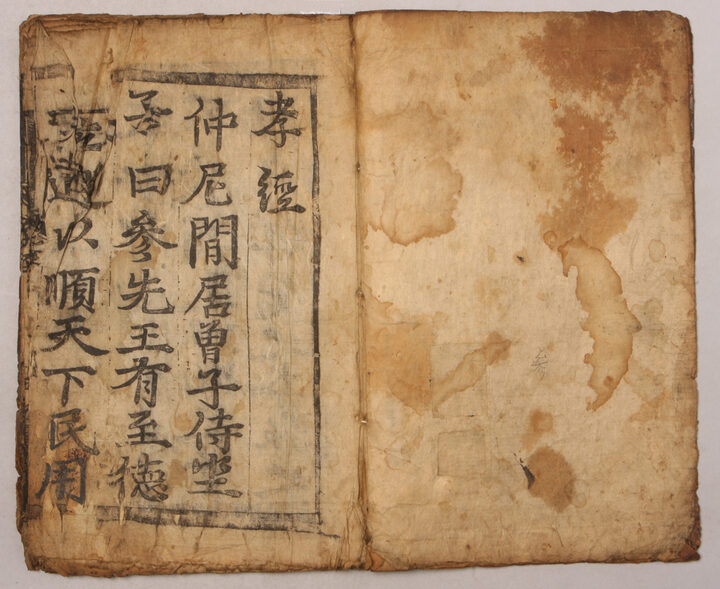 孝經
仲尼閒居曾子侍坐
子曰參先王有至德
道以順天下民用